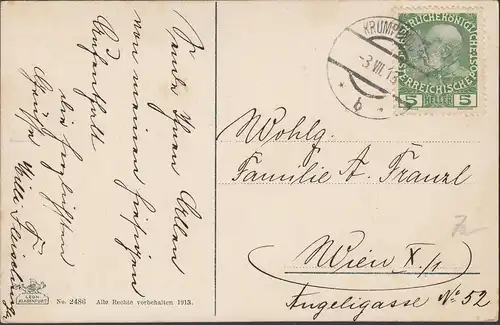 Sende Ihnen Allen
von meinem hiesigen
Aufenthalt
die herzlichsten
Grüße
Willi
KRUMPEN
-3.VII.13
* b *
KAISERLICHE KÖNIGLICHE
ÖSTERREICHISCHE POST
5 HELLER 5
Wohlg.
Familie A. Franzl
Wien X./1
Angeligasse No 52
LEON
KLAGENFURT
No. 2486 Alle Rechte vorbehalten 1913.